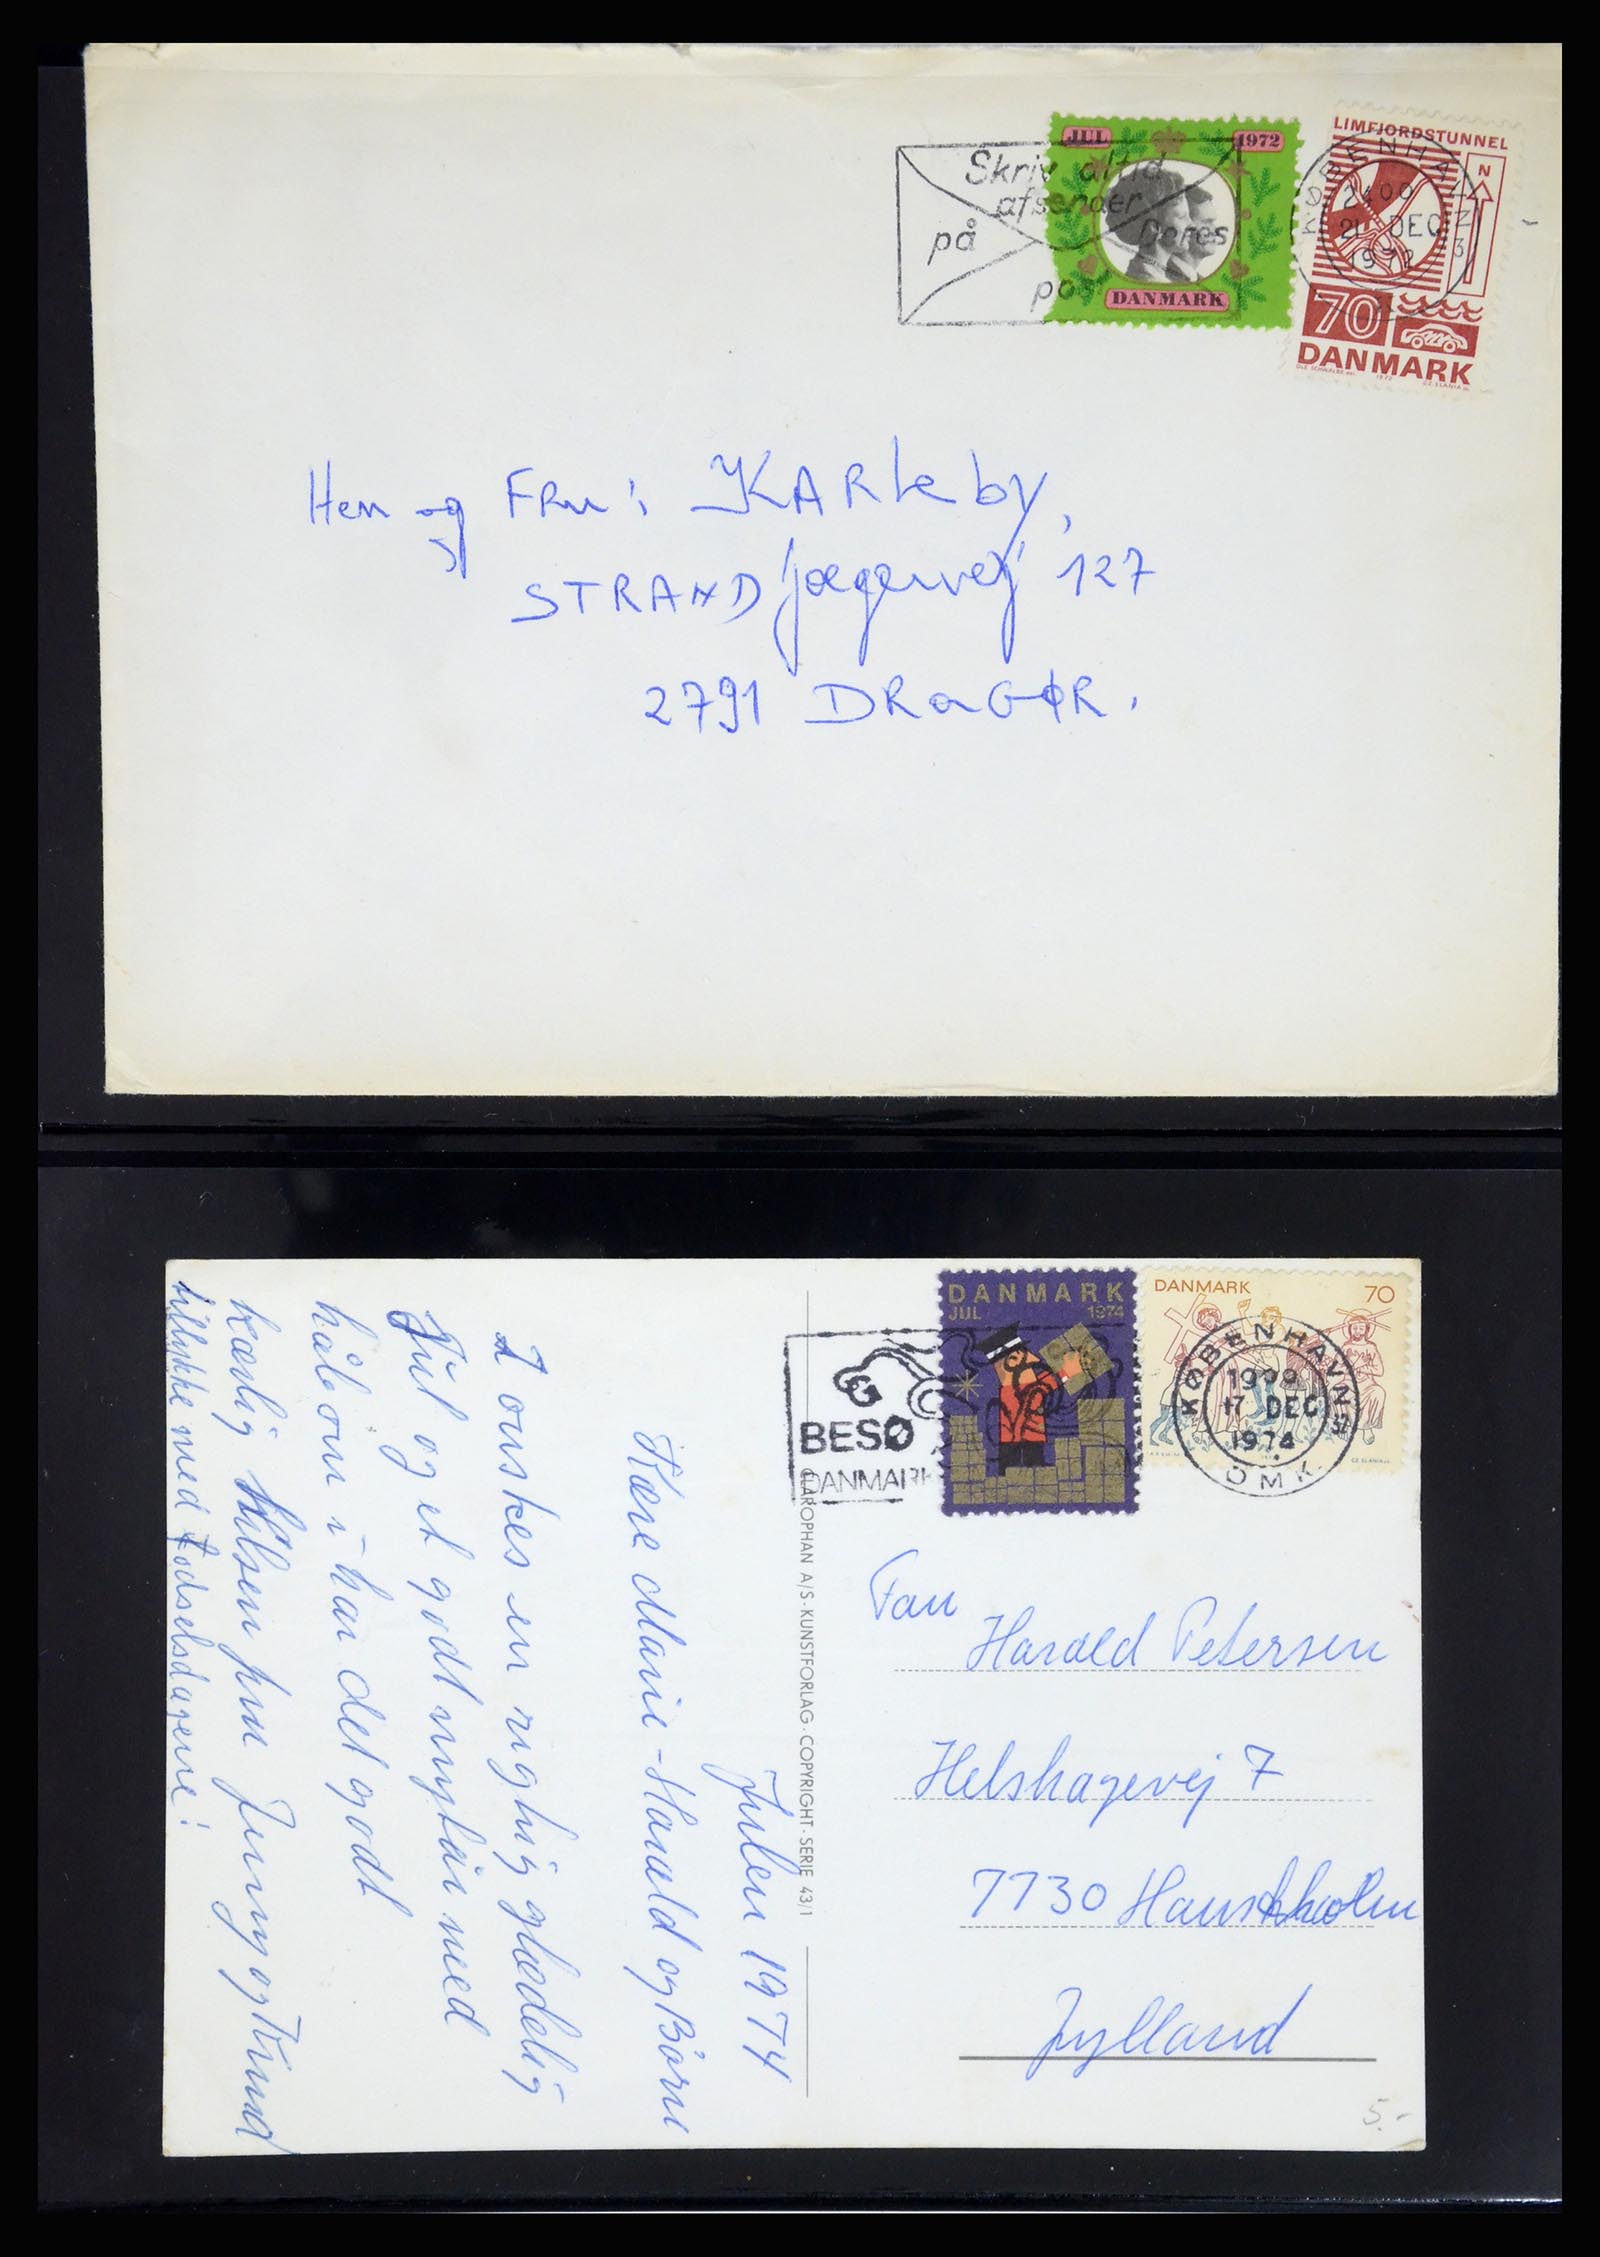 JUL 1972
DANMARK
LIMFJORDSTUNNEL
N
70
DANMARK
Skriv altid
afsender
på Deres
post
KØBENHAVN
2400
21 DEC
1972
Herr og FRu: KARleby,
STRANDjægervej 127
2791 DRaGØR.
DANMARK
JUL 1974
DANMARK 70
CZ SLANIA
BESØG
DANMARK
KØBENHAVN
17 DEC
1974
OMK
CLAROPHAN A/S · KUNSTFORLAG · COPYRIGHT · SERIE 43/1
Julen 1974
Kære Marie-Harald og Børn
I ønskes en rigtig glædelig
Jul og et godt nytår med
håb om i har det godt
kærlig Hilsen fra Jenny og Knud
tillykke med fødselsdagene!
Fam
Harald Petersen
Helshagevej 7
7730 Hanstholm
Jylland
5.-